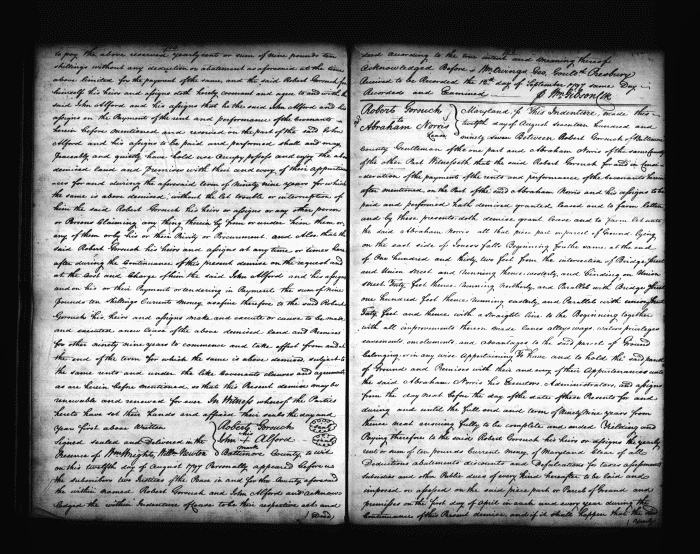 to pay the above reserved yearly rent or sum of nine pounds ten
shillings without any deduction or abatement as aforesaid at the time
above limited for the payment of the same, and the said Robert Gorsuch for
himself his heirs and assigns doth hereby covenant and agree to and with the
said John Alford and his assigns that he the said John Alford and his
assigns on the Payment of the rent and performance of the Covenants
herein before mentioned and reserved on the part of the said John
Alford and his assigns to be paid and performed shall and may
Peaceably and quietly have hold use occupy possess and enjoy the above
demised land and Premises with their and every of their appurtenan
ces for and during the aforesaid term of Ninety nine years for which
the same is above demised, without the let trouble or interruption of
him the said Robert Gorsuch his heirs or assigns or any other person
or Persons Claiming any thing therein by from or under him them or
any of them or by his or their Privity or procurement and Also that the
said Robert Gorsuch his heirs and assigns at any time or times here
after during the Continuance of this present demise on the request and
at the Cost and Charge of him the said John Alford and his assigns
and on his or their Payment or tendering in Payment the sum of Nine
Pounds ten Shillings Current Money as a fine therefor to the said Robert
Gorsuch his heirs and assigns make and execute or cause to be made
and executed a new lease of the above demised land and Premises
for other ninety nine years to commence and take effect from and at
the end of the term for which the same is above demised, subject to
the same rents and under the like Covenants clauses and agreements
as are herein before mentioned, so that this Present demise may be
renewable and renewed for ever In Witness whereof the Parties
hereto have set their hands and affixed their seals the day and
Year first above written
Robert Gorsuch
Signed sealed and Delivered in the
John his + mark Alford
Presence of Wm Wright,
Baltimore County, to wit
on this twelfth day of August 1797 Personally appeared before us
the subscribers two Justices of the Peace in and for the County aforesaid
the within named Robert Gorsuch and John Alford and acknow
ledged the within Indenture of Lease to be their respective act and
(Deed)
deed according to the true intent and meaning thereof
Acknowledged Before Geo Gould Presbury
Received to be Recorded the 12th day of September 1797 same Day
Recorded and Examined Wm Gibson Clk
Robert Gorsuch
to
Abraham Norris
Lease
Maryland ss This Indenture, made this
twelfth day of August seventeen hundred and
ninety seven Between Robert Gorsuch of Baltimore
County Gentleman of the one part and Abraham Norris of the same County
of the other Part Witnesseth that the said Robert Gorsuch for and in Consi
deration of the payment of the rents and performance of the Covenants herein
after mentioned, on the Part of the said Abraham Norris and his assigns to be
paid and performed hath demised granted leased and to farm letten
and by these presents doth demise grant lease and to farm let unto
he said Abraham Norris all that piece part or parcel of Ground lying
on the east side of Jones's falls Beginning for the same at the end
of One hundred and thirty two feet from the intersection of Bridge Street
and Union Street and running thence westerly and Binding on Union
Street Forty feet thence running Northerly and Parallel with Bridge Street
one hundred feet thence running easterly and Parallel with
Forty feet and thence with a straight line to the Beginning together
with all improvements thereon made lanes alleys ways waters privileges
easements on elements and advantages to the said parcel of Ground
belonging or in any wise appertaining To have and to hold the said parcel
of Ground and Premises with their and every of their Appurtenances unto
the said Abraham Norris his Executors Administrators, and assigns
from the day next before the day of the date of these Presents for and
during and until the full end and term of Ninety Nine years from
thence next ensuing fully to be complete and ended Yielding and
Paying therefore to the said Robert Gorsuch his heirs or assigns the yearly
rent or sum of ten pounds Current money of Maryland Clear of all
Deductions abatements discounts and Defalcations for taxes assessments
subsidies and other Public dues of every kind hereafter to be laid and
imposed or assessed on the said piece part or Parcel of Ground and
premises on the first day of April in each and every year during the
Continuance of this Present demise and if it shall happen that the said
(Yearly)